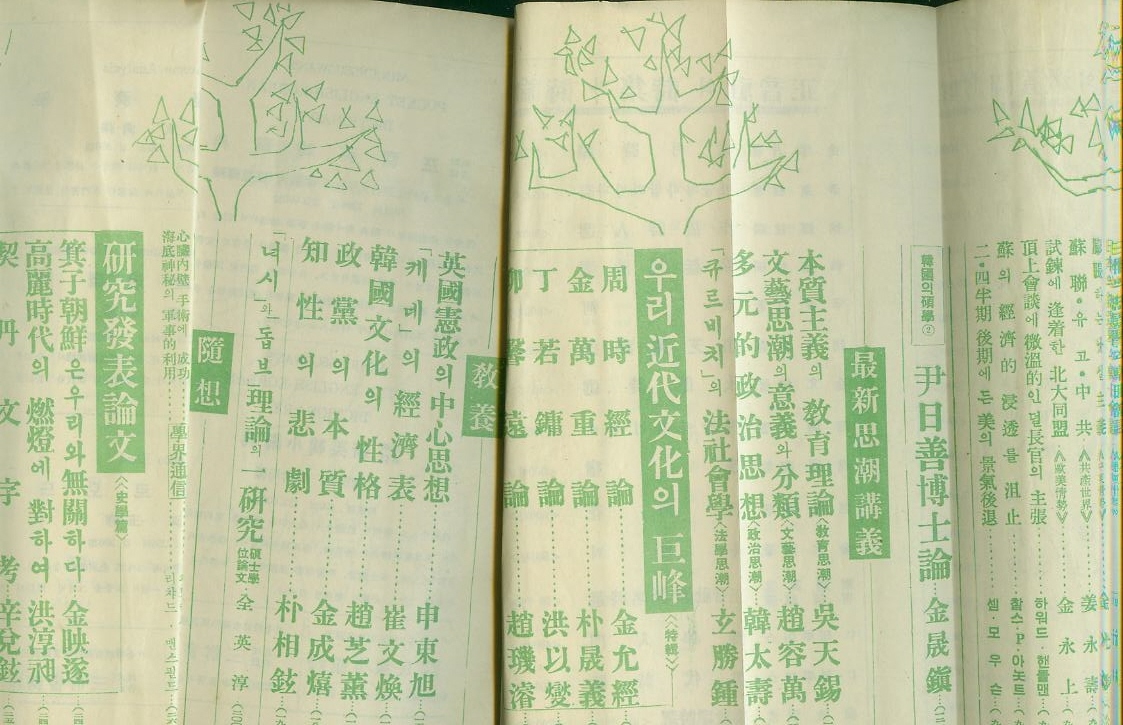 試鍊에 逢着한 北大同盟 《歐美博愛》 金永上
頂上會談에 微溫的인 덜長官의 主張 하워드·핸들맨
蘇의 經濟的 浸透를 沮止 촬스·P·아놋트
二·四半期 後期에는 美의 景氣後退 셀·모우슨
韓國의 碩學②
尹日善博士論 金晟鎭
最新思潮講義
本質主義의 敎育理論 《敎育思潮》 吳天錫
文藝思潮의 意義와 分類 《文藝思潮》 趙容萬
多元的 政治思想 《政治思潮》 韓太壽
「큐르비치」의 法社會學 《法學思潮》 玄勝鍾
우리 近代文化의 巨峰 《特輯》
周時經論 金允經
金萬重論 朴晟義
丁若鏞論 洪以燮
卯馨遠論 趙璣濬
敎養
英國憲政의 中心思想 申東旭
「케네」의 經濟表 崔文煥
韓國文化의 性格 趙芝薰
政黨의 本質 金成熺
知性의 悲劇 朴相鉉
「녀시」와 「돕브」理論의 一硏究 碩士學位論文 全英淳
隨想
心臟內壁 手術에 成功
海底神秘의 軍事的 利用 學界通信
硏究發表論文 《史學篇》
箕子朝鮮은 우리와 無關하다 金映遂
高麗時代의 燃燈에 對하여 洪淳昶
契丹文字考 辛兌鉉